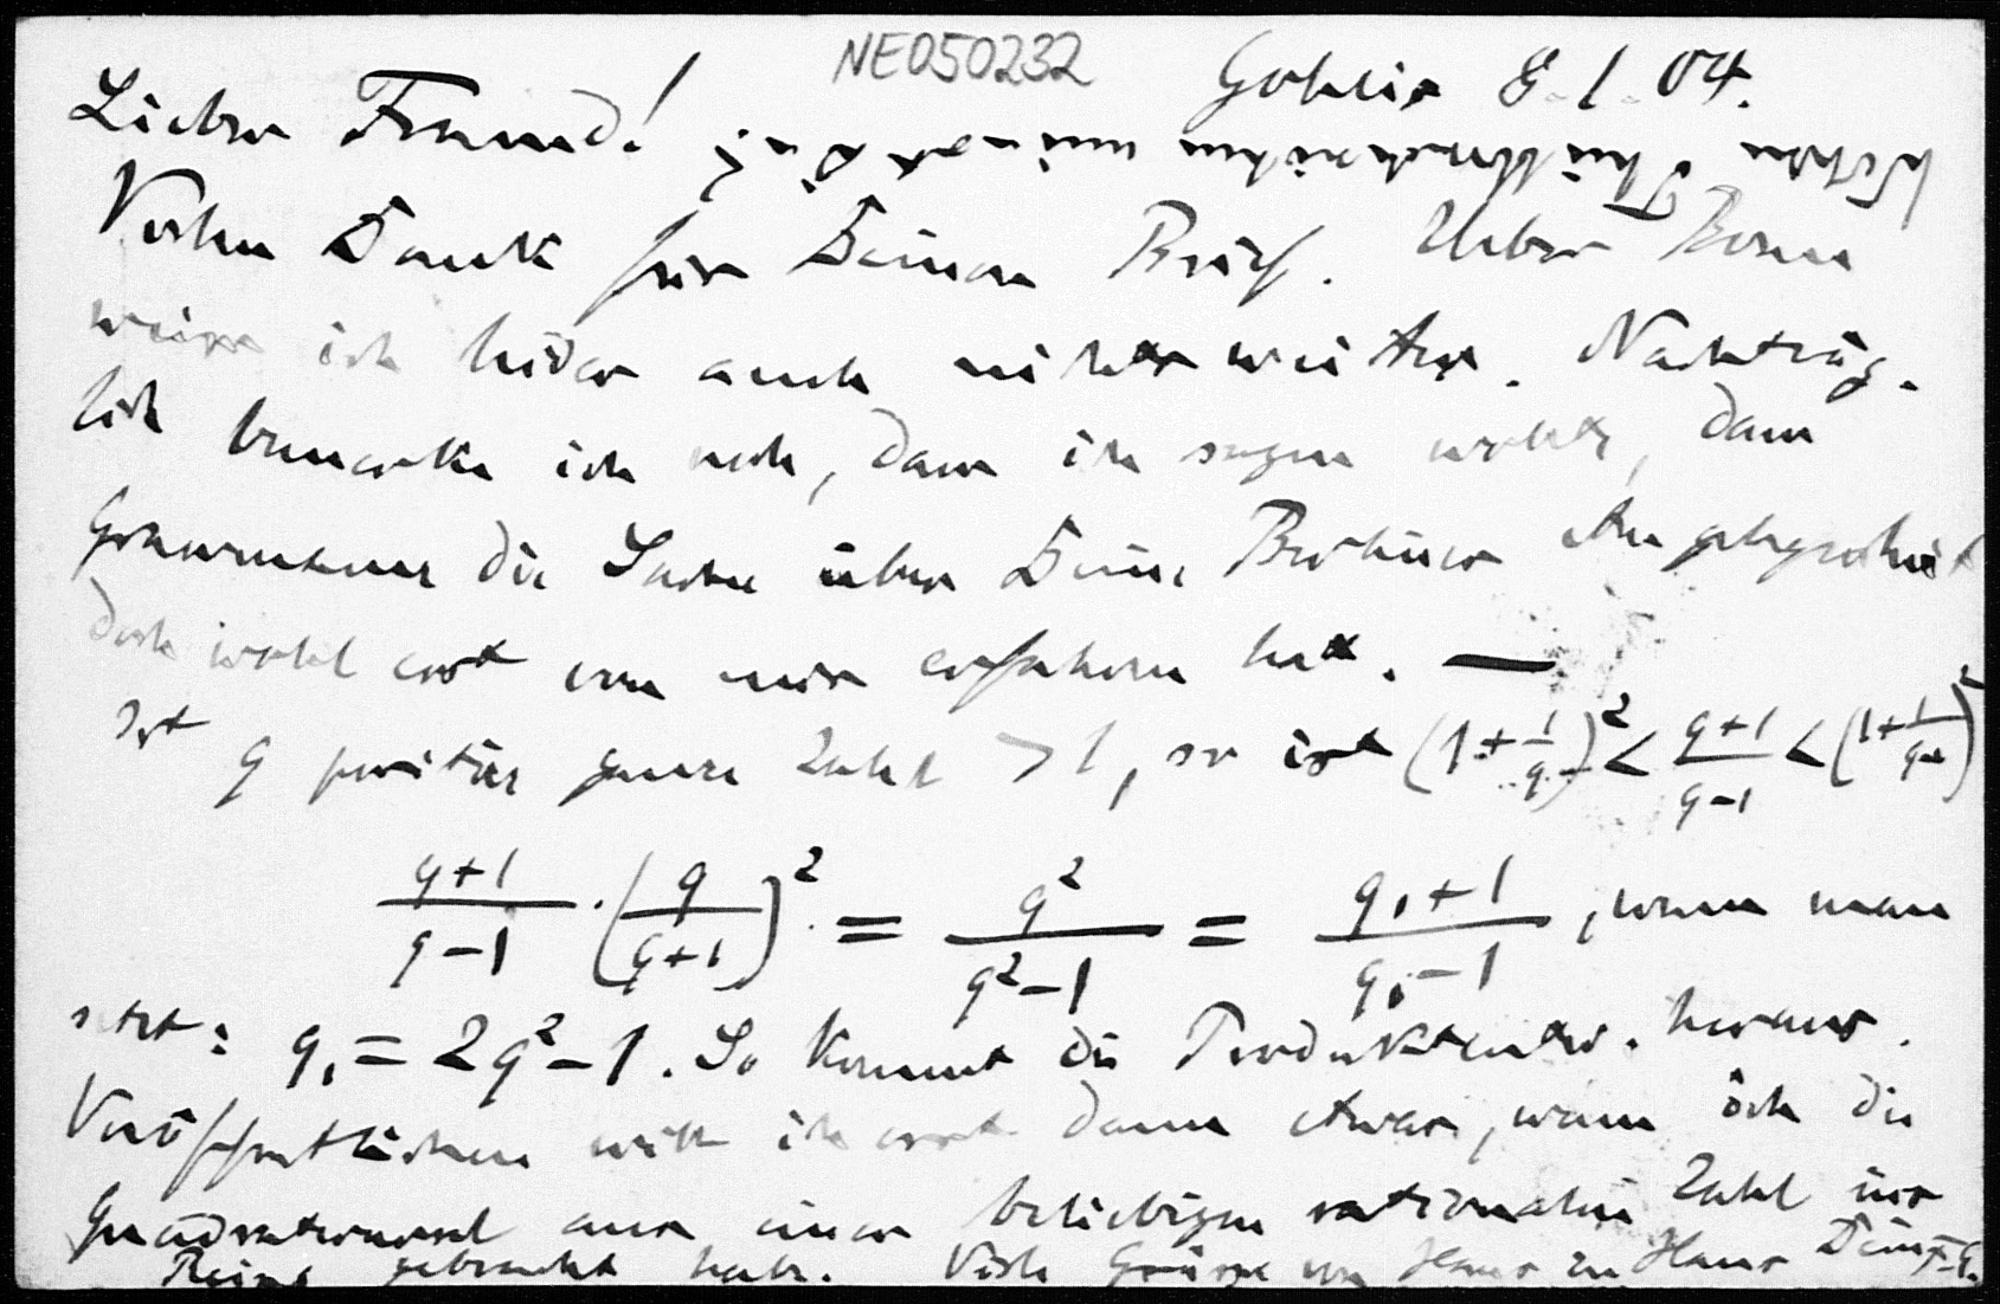 NE050232
Gohlis 8.1.04.
Lieber Freund!
Vielen Dank für Deinen Brief. Ueber Borne
weiss ich leider auch nichts weiter. Nachträg-
lich bemerke ich noch, dass ich sagen wollte, dass
die Sache über Deine
doch wohl erst von mir erfahren hat. —
Ist q positive ganze Zahl > 1, so ist (1+1/q)² < (q+1)/(q-1) < (1+1/(q-1))²
(q+1)/(q-1) · (q/(q+1))² = q²/(q²-1) = (q₁+1)/(q₁-1), wenn man
setzt: q₁ = 2q²-1. So kommt die Produktentw. heraus.
Veröffentlichen will ich erst dann etwas, wenn ich die
Quadratwurzel aus einer beliebigen rationalen Zahl ins
Reine gebracht habe. Viele Grüsse von Haus zu Haus Dein F. E.